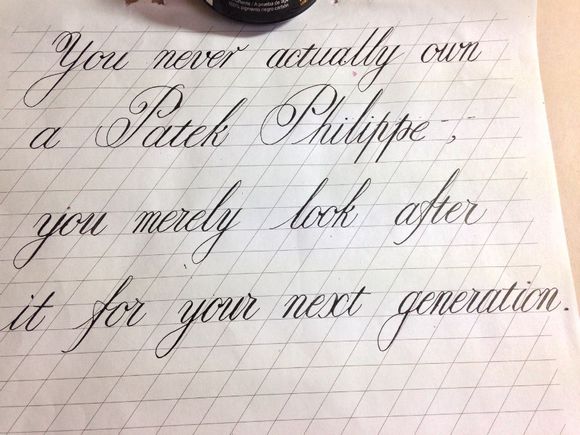 A prueba de agua
100% pigmento negro carbón
You never actually own
a Patek Philippe-,
you merely look after
it for your next generation.